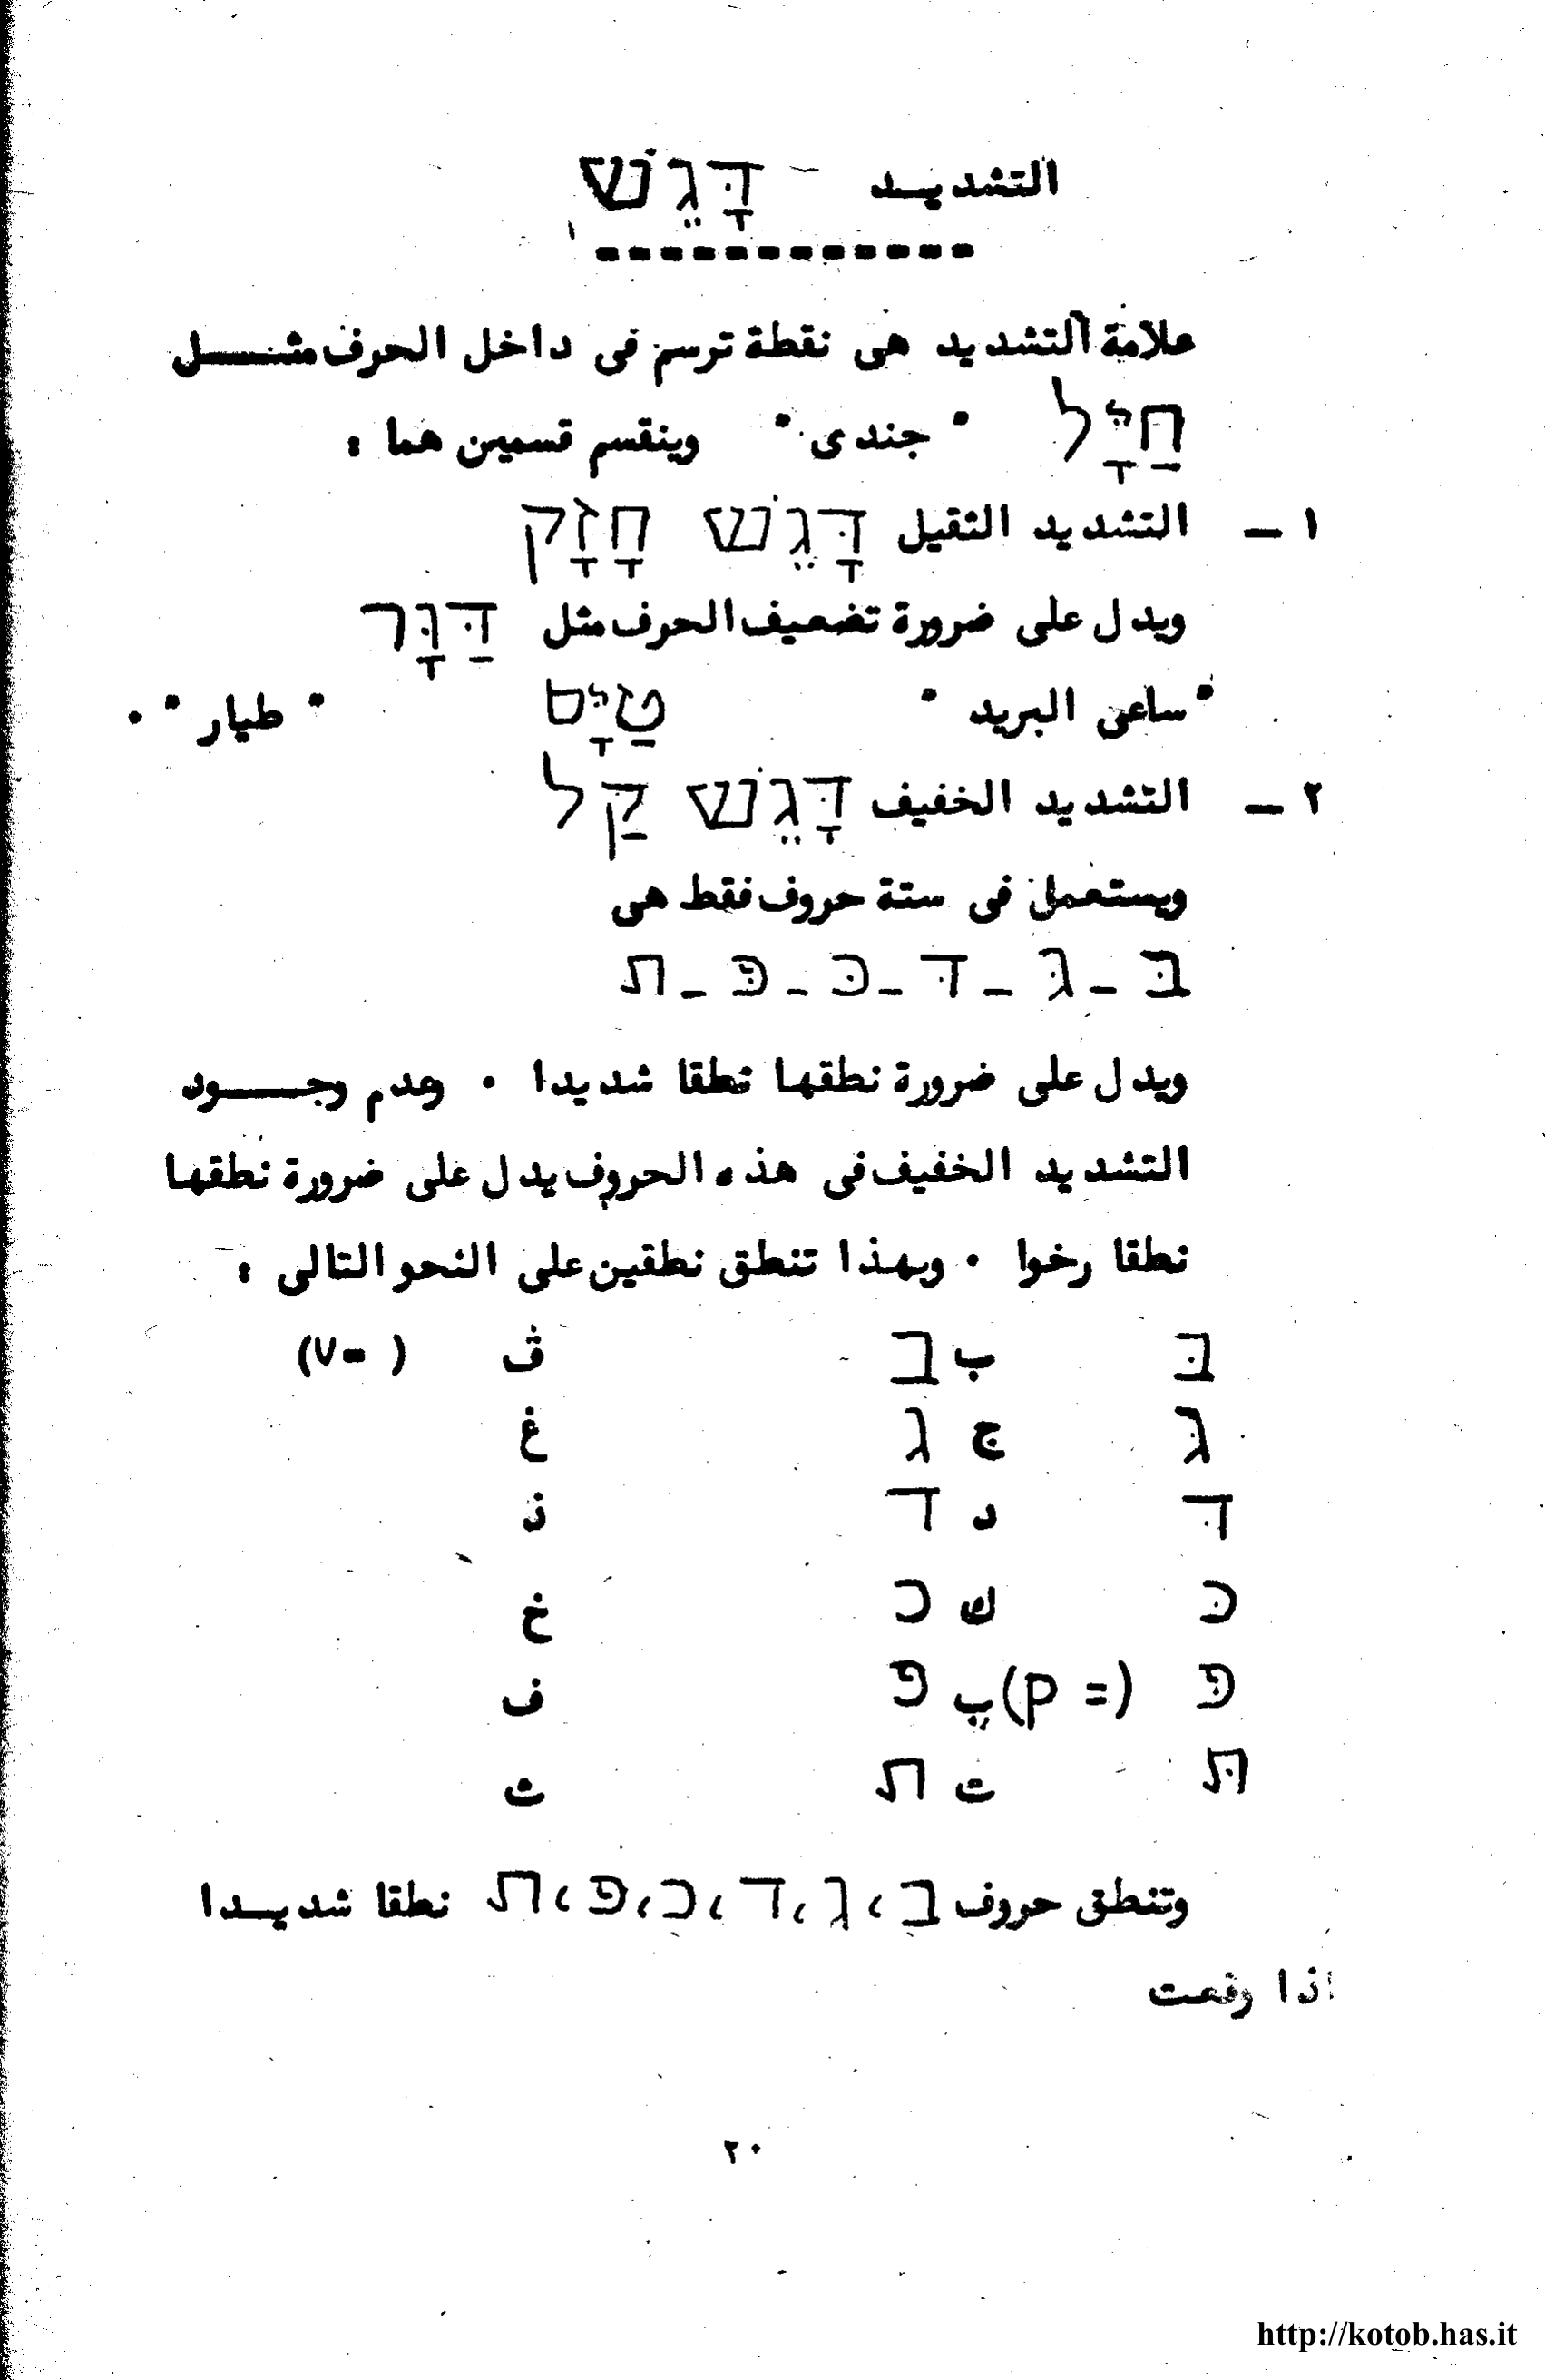 التشديد דָּגֵשׁ
علامة التشديد هى نقطة ترسم فى داخل الحرف مثل
חַיָּל " جندى " وينقسم قسمين هما :
١ - التشديد الثقيل דָּגֵשׁ חָזָק
ويدل على ضرورة تضعيف الحرف مثل דַּוָּר
" ساعى البريد " טַיָּס " طيار " .
٢ - التشديد الخفيف דָּגֵשׁ קַל
ويستعمل فى ستة حروف فقط هى
בּ - גּ - דּ - כּ - פּ - ת
ويدل على ضرورة نطقها نطقا شديدا . وعدم وجود
التشديد الخفيف فى هذه الحروف يدل على ضرورة نطقها
نطقا رخوا . وبهذا تنطق نطقين على النحو التالى :
בּ ب ב ڤ ( = v)
גּ ج ג غ
דּ د ד ذ
כּ ك כ خ
פּ (= p) پ פ ف
תּ ت ת ث
وتنطق حروف ב ، ג ، ד ، כ ، פ ، ת نطقا شديدا
اذا وقعت
٢٠
http://kotob.has.it